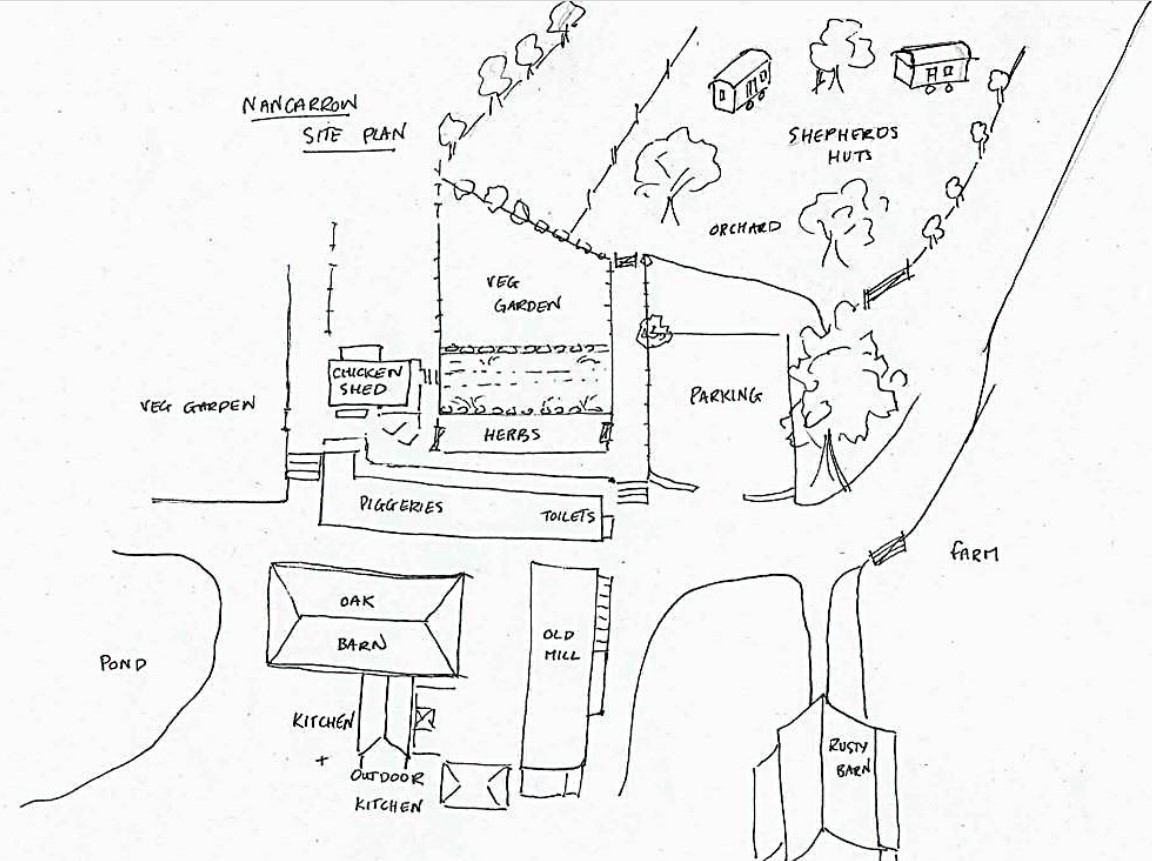 NANCARROW
SITE PLAN
SHEPHERDS
HUTS
ORCHARD
VEG
GARDEN
CHICKEN
SHED
VEG GARDEN
PARKING
HERBS
PIGGERIES
TOILETS
FARM
OAK
BARN
OLD
MILL
POND
KITCHEN
+
OUTDOOR
KITCHEN
RUSTY
BARN